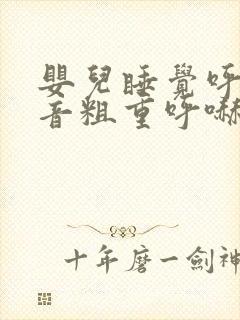 嬰兒睡覺呼
音粗重呼嚇
十年磨一劍神